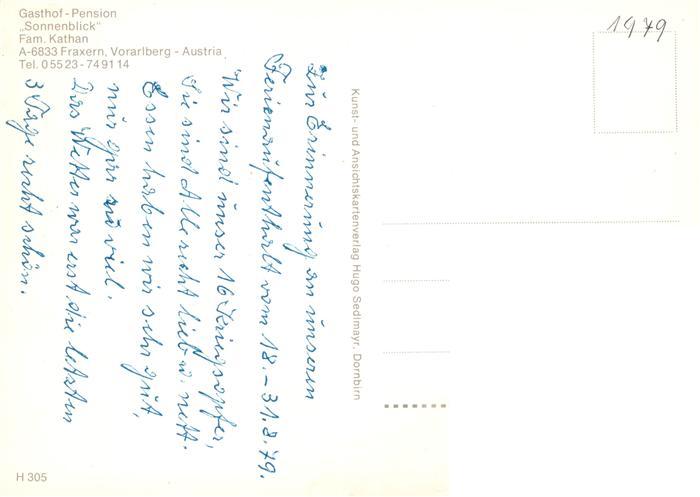 Gasthof - Pension
„Sonnenblick"
Fam. Kathan
A-6833 Fraxern, Vorarlberg - Austria
Tel. 0 55 23 - 7 49 1 14
1979
Zur Erinnerung an unsern
Ferienaufenthalt vom 18. – 31.8.79.
Wir sind unser 16 Kriegsopfer,
Sie sind Alle recht lieb u. nett.
Essen haben wir sehr gut,
nur gar zu viel.
Das Wetter war erst die letzten
3 Tage recht schön.
Kunst- und Ansichtskartenverlag Hugo Sedlmayr, Dornbirn
H 305